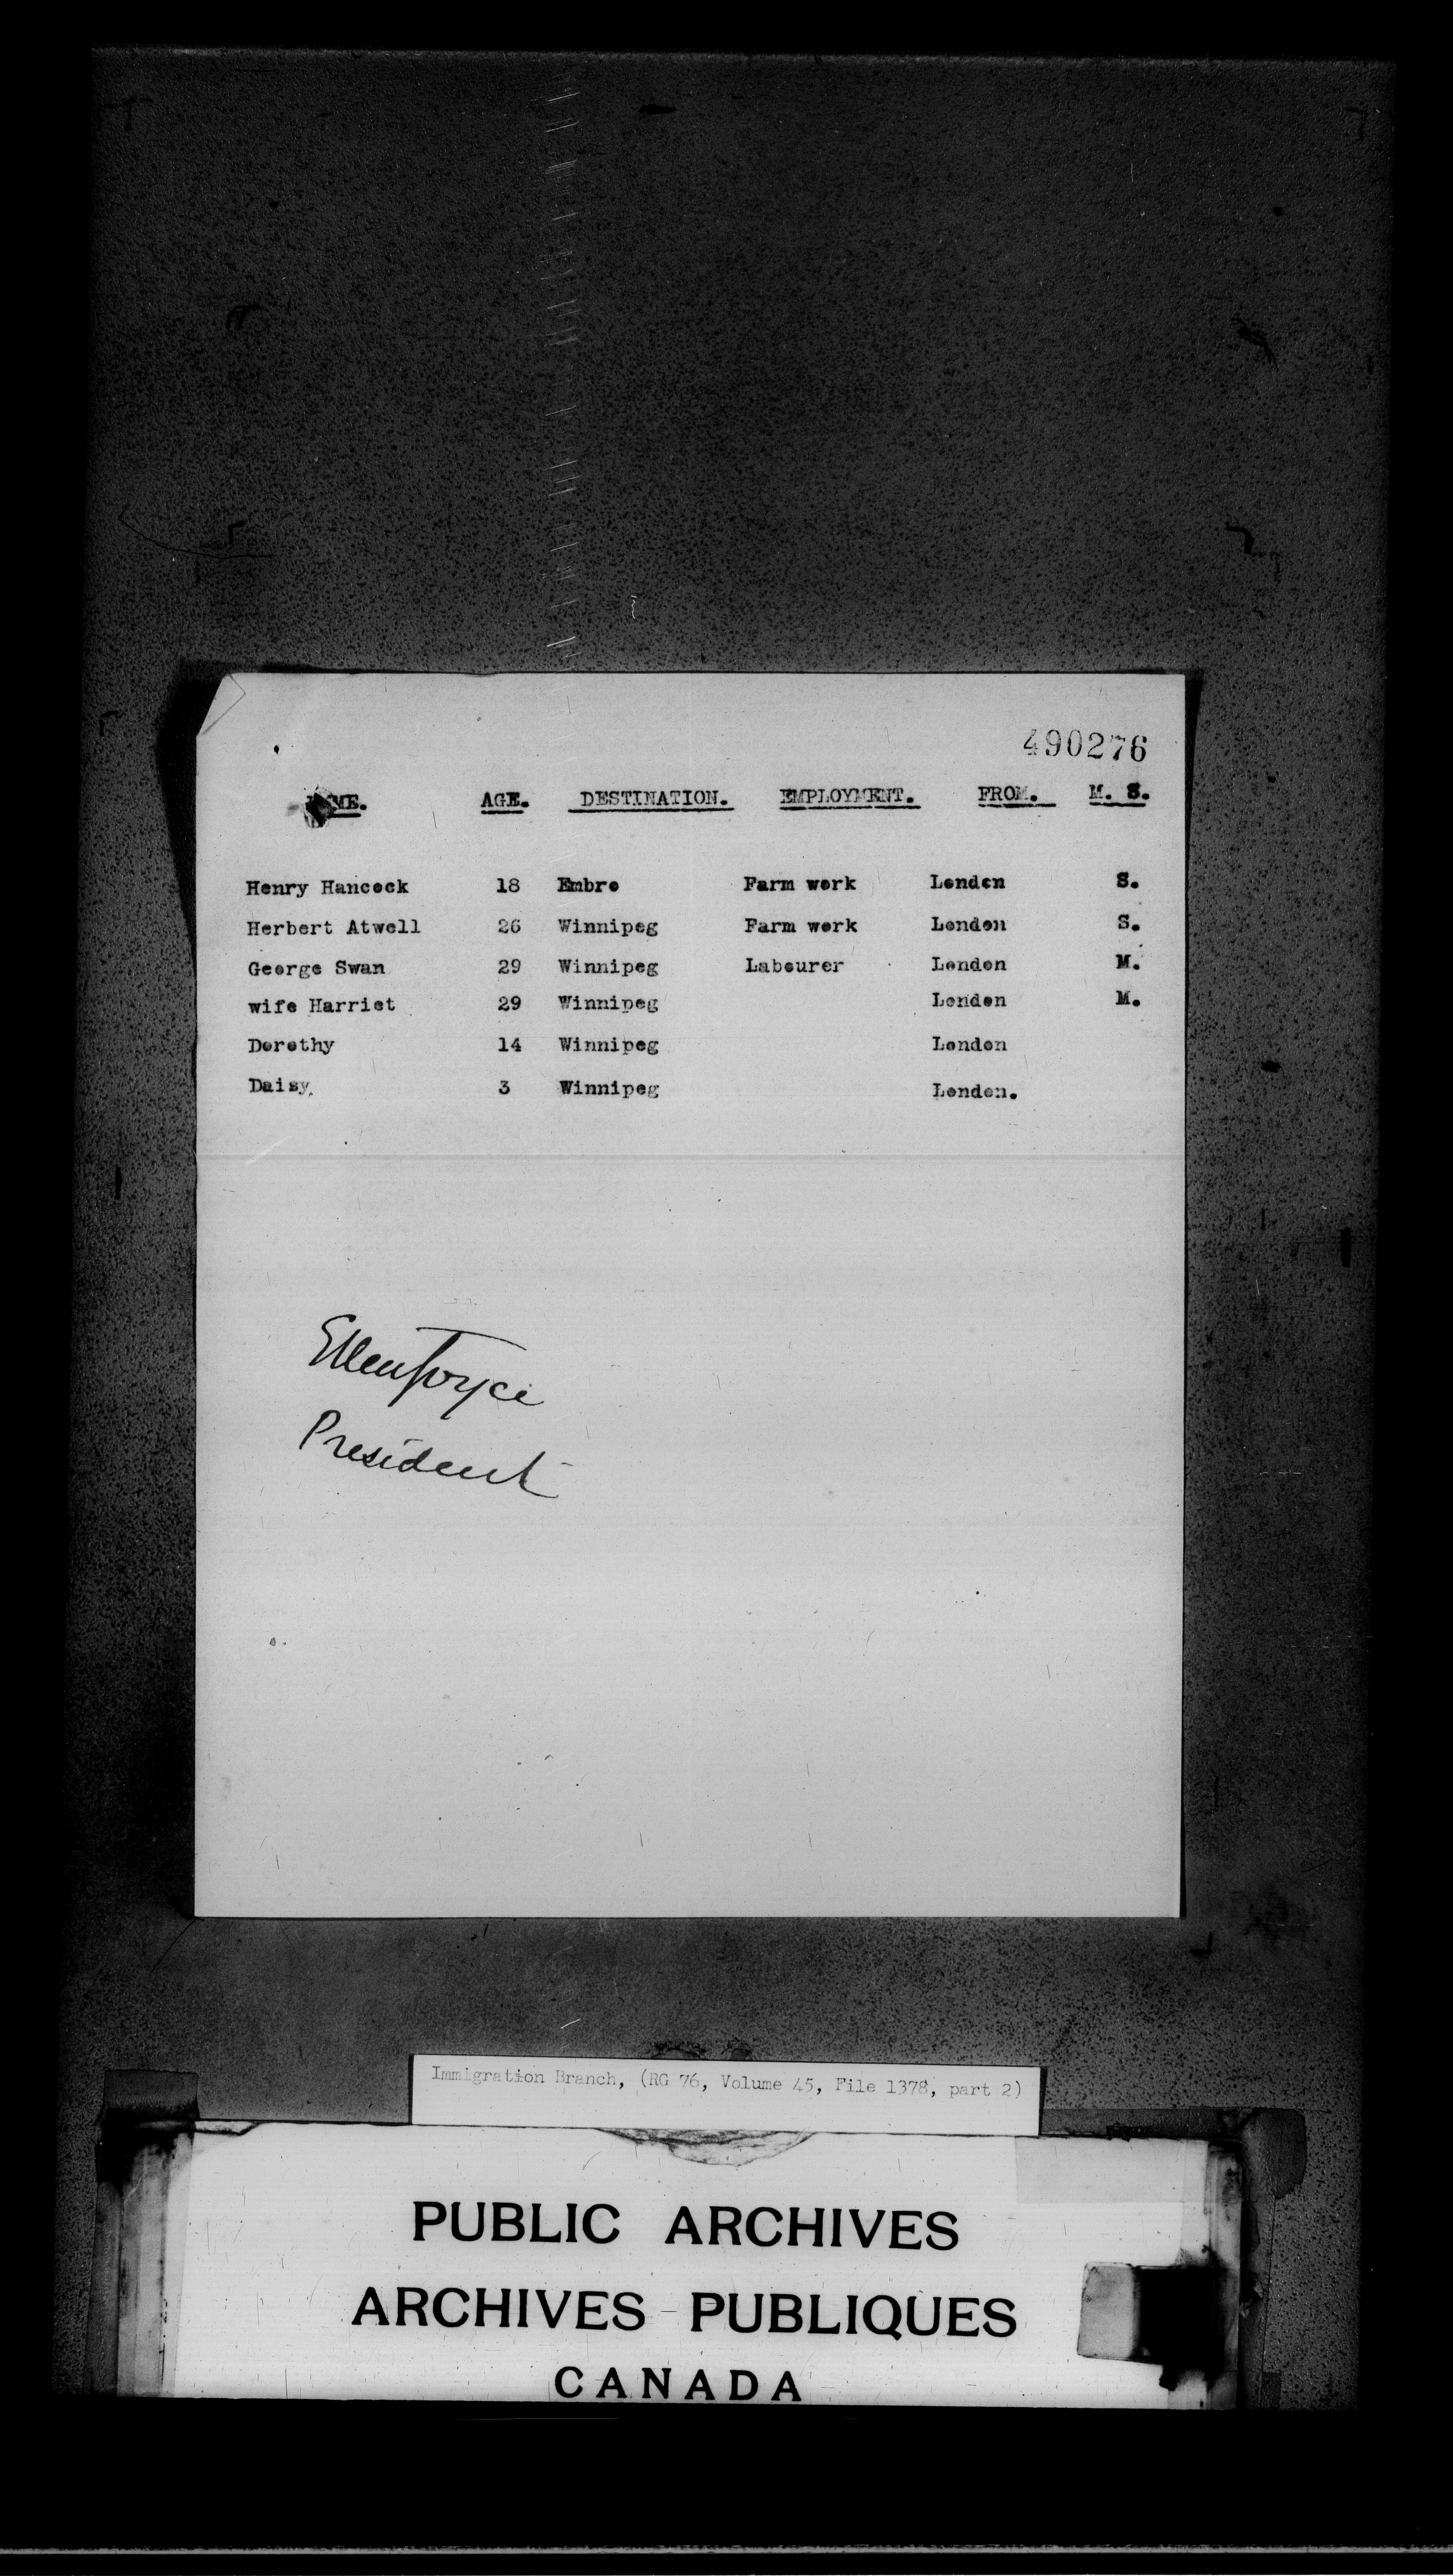 490276
NAME. AGE. DESTINATION. EMPLOYMENT. FROM. M. S.
Henry Hancock 18 Embro Farm work London S.
Herbert Atwell 26 Winnipeg Farm work London S.
George Swan 29 Winnipeg Labourer London M.
wife Harriet 29 Winnipeg London M.
Dorothy 14 Winnipeg London
Daisy. 3 Winnipeg London.
Ellen Joyce
President
Immigration Branch, (RG 76, Volume 45, File 1378, part 2)
PUBLIC ARCHIVES
ARCHIVES PUBLIQUES
CANADA